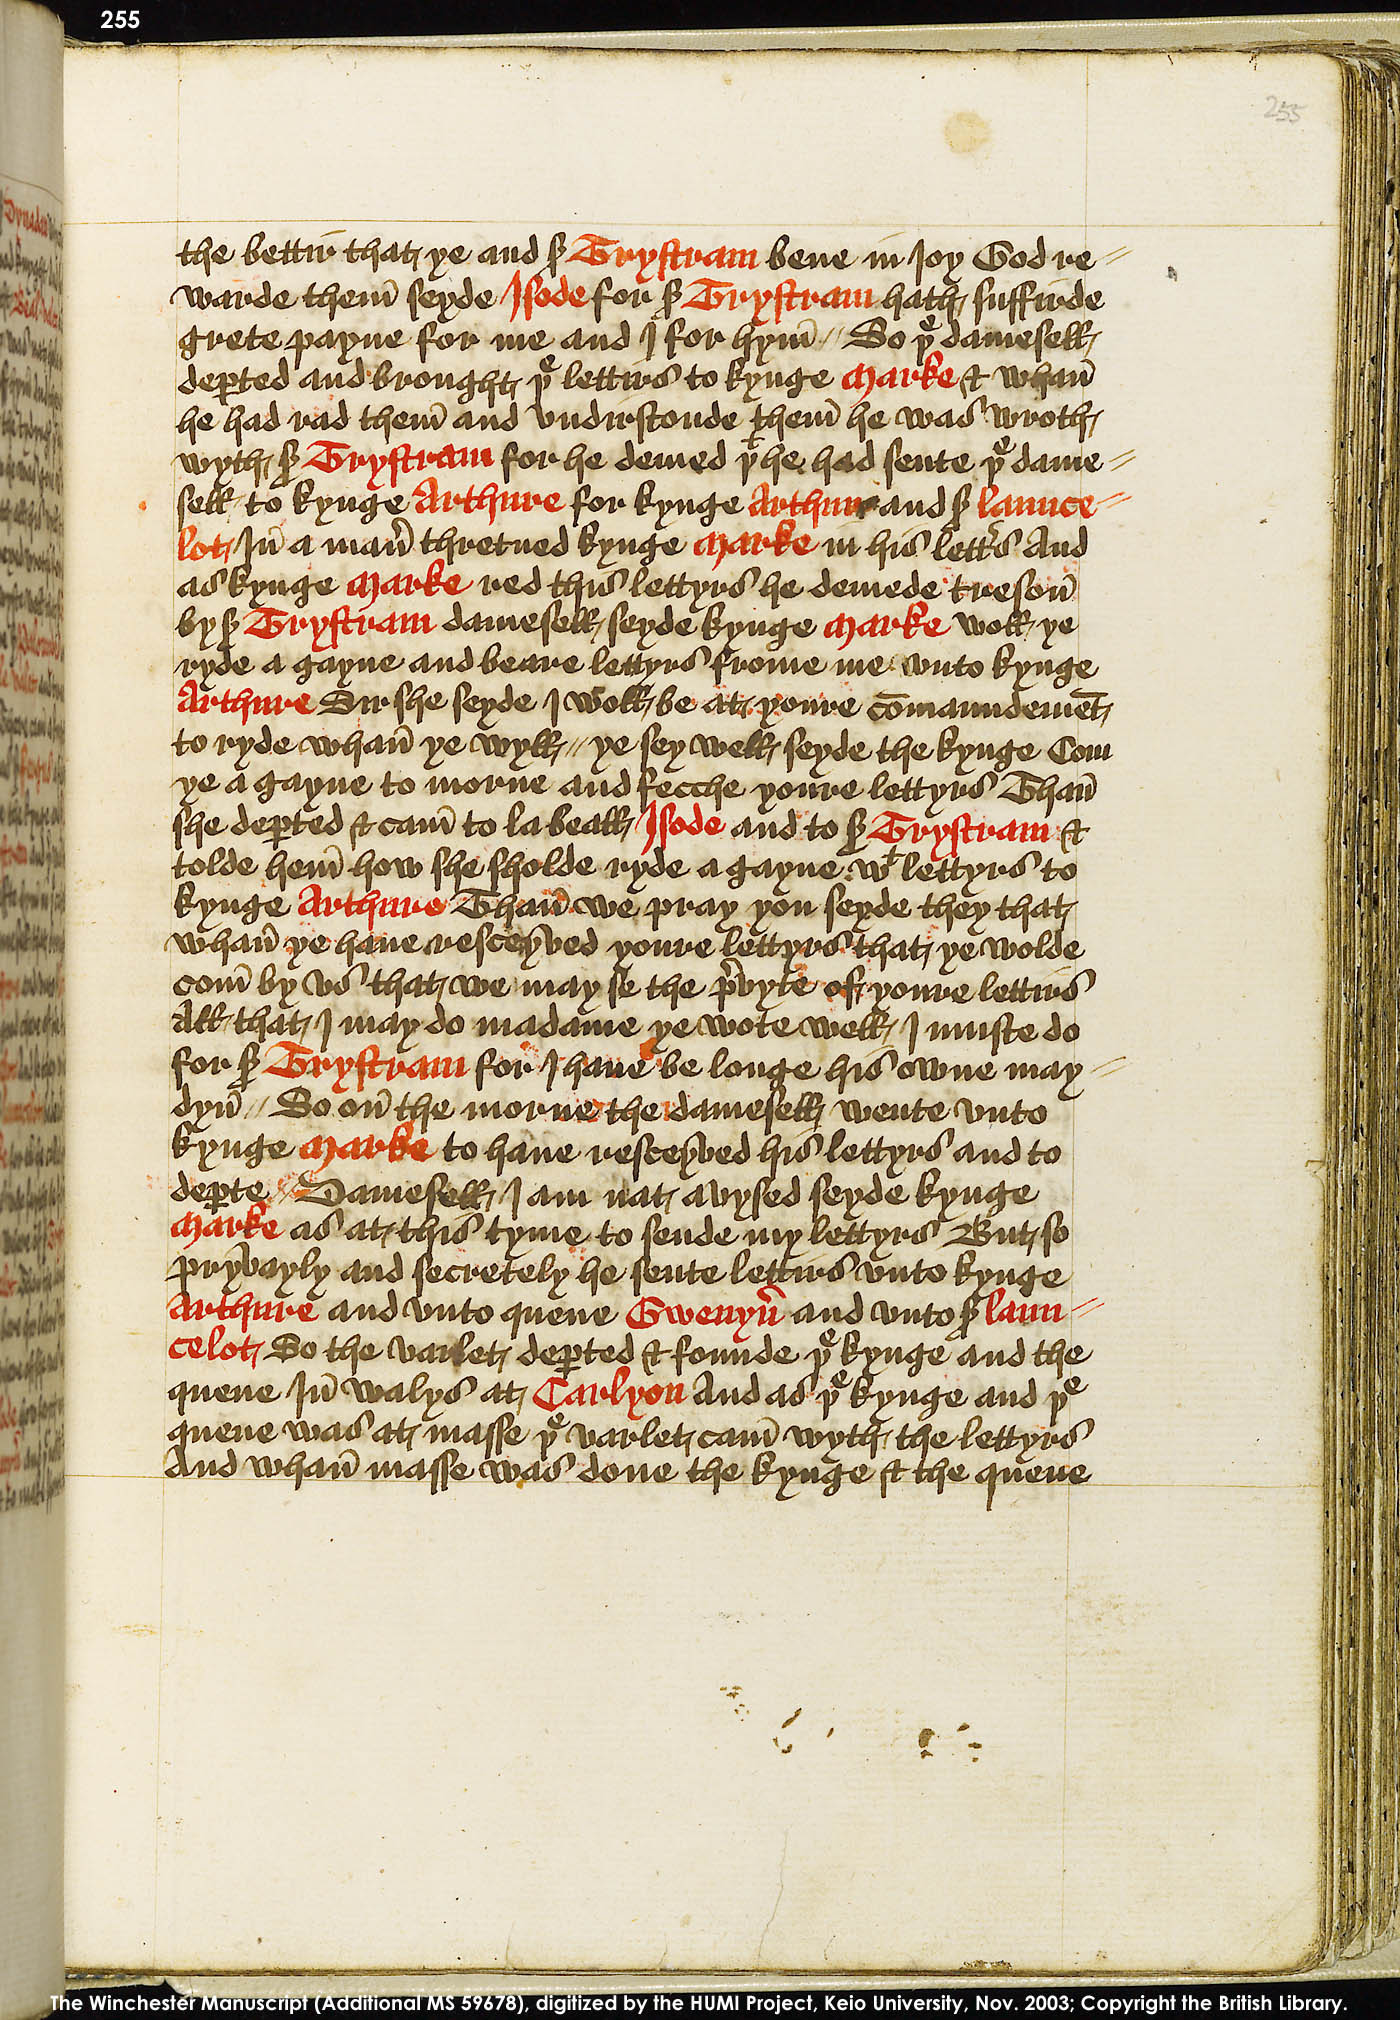 255
255
the bettir that ye and sr Trystram bene in Joy God re=
warde them seyde Isode for sr Trystram hath suffirde
grete payne for me and I for hym // So þe damesell
deꝑted and brought þe lettirs to kynge Marke & whan
he had rad them and vndirstonde them he was wroth
wyth sr Trystram for he demed þt he had sente þe dame=
sell to kynge Arthure for kynge Arthure and sr launce=
lot In a maner thretned kynge Marke in his lettrs And
as kynge Marke red this lettyrs he demede treson
by sr Trystram damesell seyde kynge Marke woll ye
ryde a gayne and beare lettyrs frome me vnto kynge
Arthure Sir she seyde I woll be at youre cōmaundemēt
to ryde whan ye wyll // ye sey well seyde the kynge Com
ye a gayne to morne and fecche youre lettyrs Than
she deꝑted & cam to la beall Isode and to sr Trystram &
tolde hem how she sholde ryde a gayne wt lettyrs to
kynge Arthure Than we pray you seyde they that
whan ye haue resceyved youre lettyrs that ye wolde
com by vs that we may se the prvyte of youre lettirs
All that I may do madame ye wote well I muste do
for sr Trystram for I haue be longe his owne may=
dyn // So on the morne the damesell wente vnto
kynge Marke to haue resceyved his lettyrs and to
deꝑte // Damesell I am nat avysed seyde kynge
Marke as at this tyme to sende my lettyrs But so
pryvayly and secretely he sente lettirs vnto kynge
Arthure and vnto quene Gwenyur and vnto sr laun=
celot So the varlet deꝑted & founde þe kynge and the
quene In walys at Carlyon And as þe kynge and þe
quene was at masse þe varlet cam wyth the lettyrs
And whan masse was done the kynge & the quene
The Winchester Manuscript (Additional MS 59678), digitized by the HUMI Project, Keio University, Nov. 2003; Copyright the British Library.